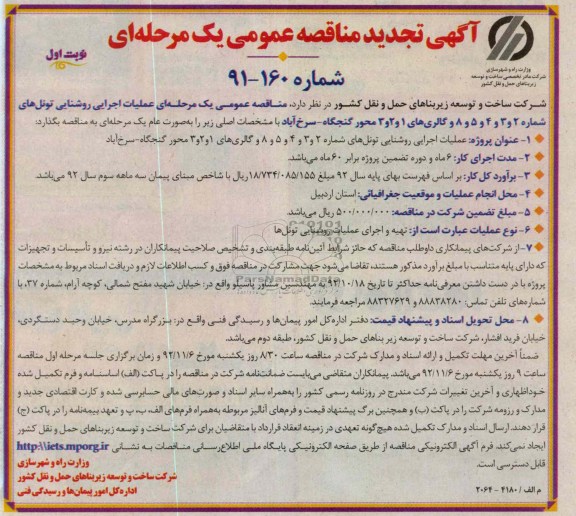 آگهی تجدید مناقصه عمومی یک مرحله‌ای
نوبت اول
شماره ۱۶۰-۹۱
وزارت راه و شهرسازی
شرکت مادر تخصصی ساخت و توسعه
زیربناهای حمل و نقل کشور
شرکت ساخت و توسعه زیربناهای حمل و نقل کشور در نظر دارد، مناقصه عمومی یک مرحله‌ای عملیات اجرایی روشنایی تونل‌های
شماره ۲ و ۳ و ۴ و ۵ و ۸ و گالری‌های ۱ و ۲ و ۳ محور گنجگاه-سرخ‌آباد با مشخصات اصلی زیر را به‌صورت عام یک مرحله‌ای به مناقصه بگذارد:
۱- عنوان پروژه: عملیات اجرایی روشنایی تونل‌های شماره ۲ و ۳ و ۴ و ۵ و ۸ و گالری‌های ۱ و ۲ و ۳ محور گنجگاه-سرخ‌آباد
۲- مدت اجرای کار: ۶ ماه و دوره تضمین پروژه برابر ۶۰ ماه می‌باشد.
۳- برآورد کل کار: بر اساس فهرست بهای پایه سال ۹۲ مبلغ ۱۸/۷۳۴/۰۸۵/۱۵۵ ریال با شاخص مبنای پیمان سه ماهه سوم سال ۹۲ می‌باشد.
۴- محل انجام عملیات و موقعیت جغرافیائی: استان اردبیل
۵- مبلغ تضمین شرکت در مناقصه: ۵۰۰/۰۰۰/۰۰۰ ریال می‌باشد.
۶- نوع عملیات عبارت است از: تهیه و اجرای عملیات روشنایی تونل‌ها
۷- از شرکت‌های پیمانکاری داوطلب مناقصه که حائز شرایط آئین‌نامه طبقه‌بندی و تشخیص صلاحیت پیمانکاران در رشته نیرو و تأسیسات و تجهیزات
که دارای پایه متناسب با مبلغ برآورد مذکور هستند، تقاضا می‌شود جهت مشارکت در مناقصه فوق و کسب اطلاعات لازم و دریافت اسناد مربوط به مشخصات
پروژه با در دست داشتن معرفی‌نامه حداکثر تا تاریخ ۹۲/۱۰/۱۸ به مهندسین مشاور پاسیلو واقع در: خیابان شهید مفتح شمالی، کوچه آرام، شماره ۳۷، با
شماره‌های تلفن تماس: ۸۸۸۳۸۲۸۰ و ۸۸۳۲۷۶۲۹ مراجعه فرمایند.
۸- محل تحویل اسناد و پیشنهاد قیمت: دفتر اداره‌کل امور پیمان‌ها و رسیدگی فنی واقع در: بزرگراه مدرس، خیابان وحید دستگردی،
خیابان فرید افشار، شرکت ساخت و توسعه زیر بناهای حمل و نقل کشور، طبقه دوم می‌باشد.
ضمناً آخرین مهلت تکمیل و ارائه اسناد و مدارک شرکت در مناقصه ساعت ۸/۳۰ روز یکشنبه مورخ ۹۲/۱۱/۶ و زمان برگزاری جلسه مرحله اول مناقصه
ساعت ۹ روز یکشنبه مورخ ۹۲/۱۱/۶ می‌باشد. پیمانکاران متقاضی می‌بایست ضمانتنامه شرکت در مناقصه را در پاکت (الف) اساسنامه و فرم تکمیل شده
خوداظهاری و آخرین تغییرات شرکت مندرج در روزنامه رسمی کشور را به‌همراه سایر اسناد و صورت‌های مالی حسابرسی شده و کارت اقتصادی جدید و
مدارک و رزومه شرکت را در پاکت (ب) و همچنین برگ پیشنهاد قیمت و فرم‌های آنالیز مربوطه به‌همراه فرم‌های الف، ب، پ و تعهد بیمه‌نامه را در پاکت (ج)
قرار دهند. ارسال اسناد و مدارک تکمیل شده هیچ‌گونه تعهدی در زمینه انعقاد قرارداد با متقاضیان برای شرکت ساخت و توسعه زیربناهای حمل و نقل کشور
ایجاد نمی‌کند. فرم آگهی الکترونیکی مناقصه از طریق صفحه الکترونیکی پایگاه ملی اطلاع‌رسانی مناقصات به نشانی http:\\iets.mporg.ir
قابل دسترسی است.
وزارت راه و شهرسازی
شرکت ساخت و توسعه زیربناهای حمل و نقل کشور
اداره کل امور پیمان‌ها و رسیدگی فنی
م الف / ۴۱۸۰ - ۲۰۶۴